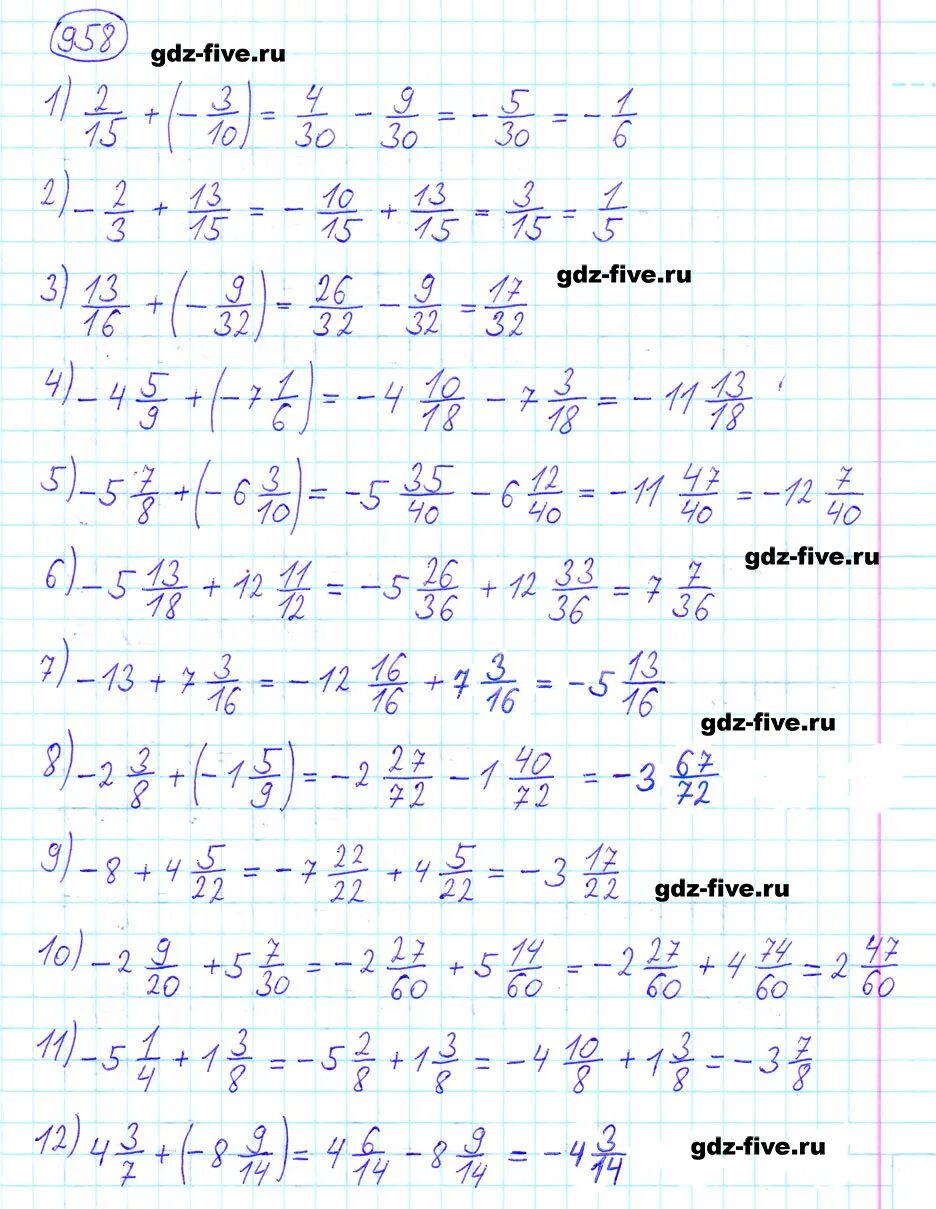 958 gdz-five.ru
1) 2/15 + (- 3/10) = 4/30 - 9/30 = - 5/30 = - 1/6
2) - 2/3 + 13/15 = - 10/15 + 13/15 = 3/15 = 1/5
gdz-five.ru
3) 13/16 + (- 9/32) = 26/32 - 9/32 = 17/32
4) - 4 5/9 + (- 7 1/6) = - 4 10/18 - 7 3/18 = - 11 13/18
5) - 5 7/8 + (- 6 3/10) = - 5 35/40 - 6 12/40 = - 11 47/40 = - 12 7/40
gdz-five.ru
6) - 5 13/18 + 12 11/12 = - 5 26/36 + 12 33/36 = 7 7/36
7) - 13 + 7 3/16 = - 12 16/16 + 7 3/16 = - 5 13/16
gdz-five.ru
8) - 2 3/8 + (- 1 5/9) = - 2 27/72 - 1 40/72 = - 3 67/72
9) - 8 + 4 5/22 = - 7 22/22 + 4 5/22 = - 3 17/22
gdz-five.ru
10) - 2 9/20 + 5 7/30 = - 2 27/60 + 5 14/60 = - 2 27/60 + 4 74/60 = 2 47/60
11) - 5 1/4 + 1 3/8 = - 5 2/8 + 1 3/8 = - 4 10/8 + 1 3/8 = - 3 7/8
12) 4 3/7 + (- 8 9/14) = 4 6/14 - 8 9/14 = - 4 3/14
gdz-five.ru